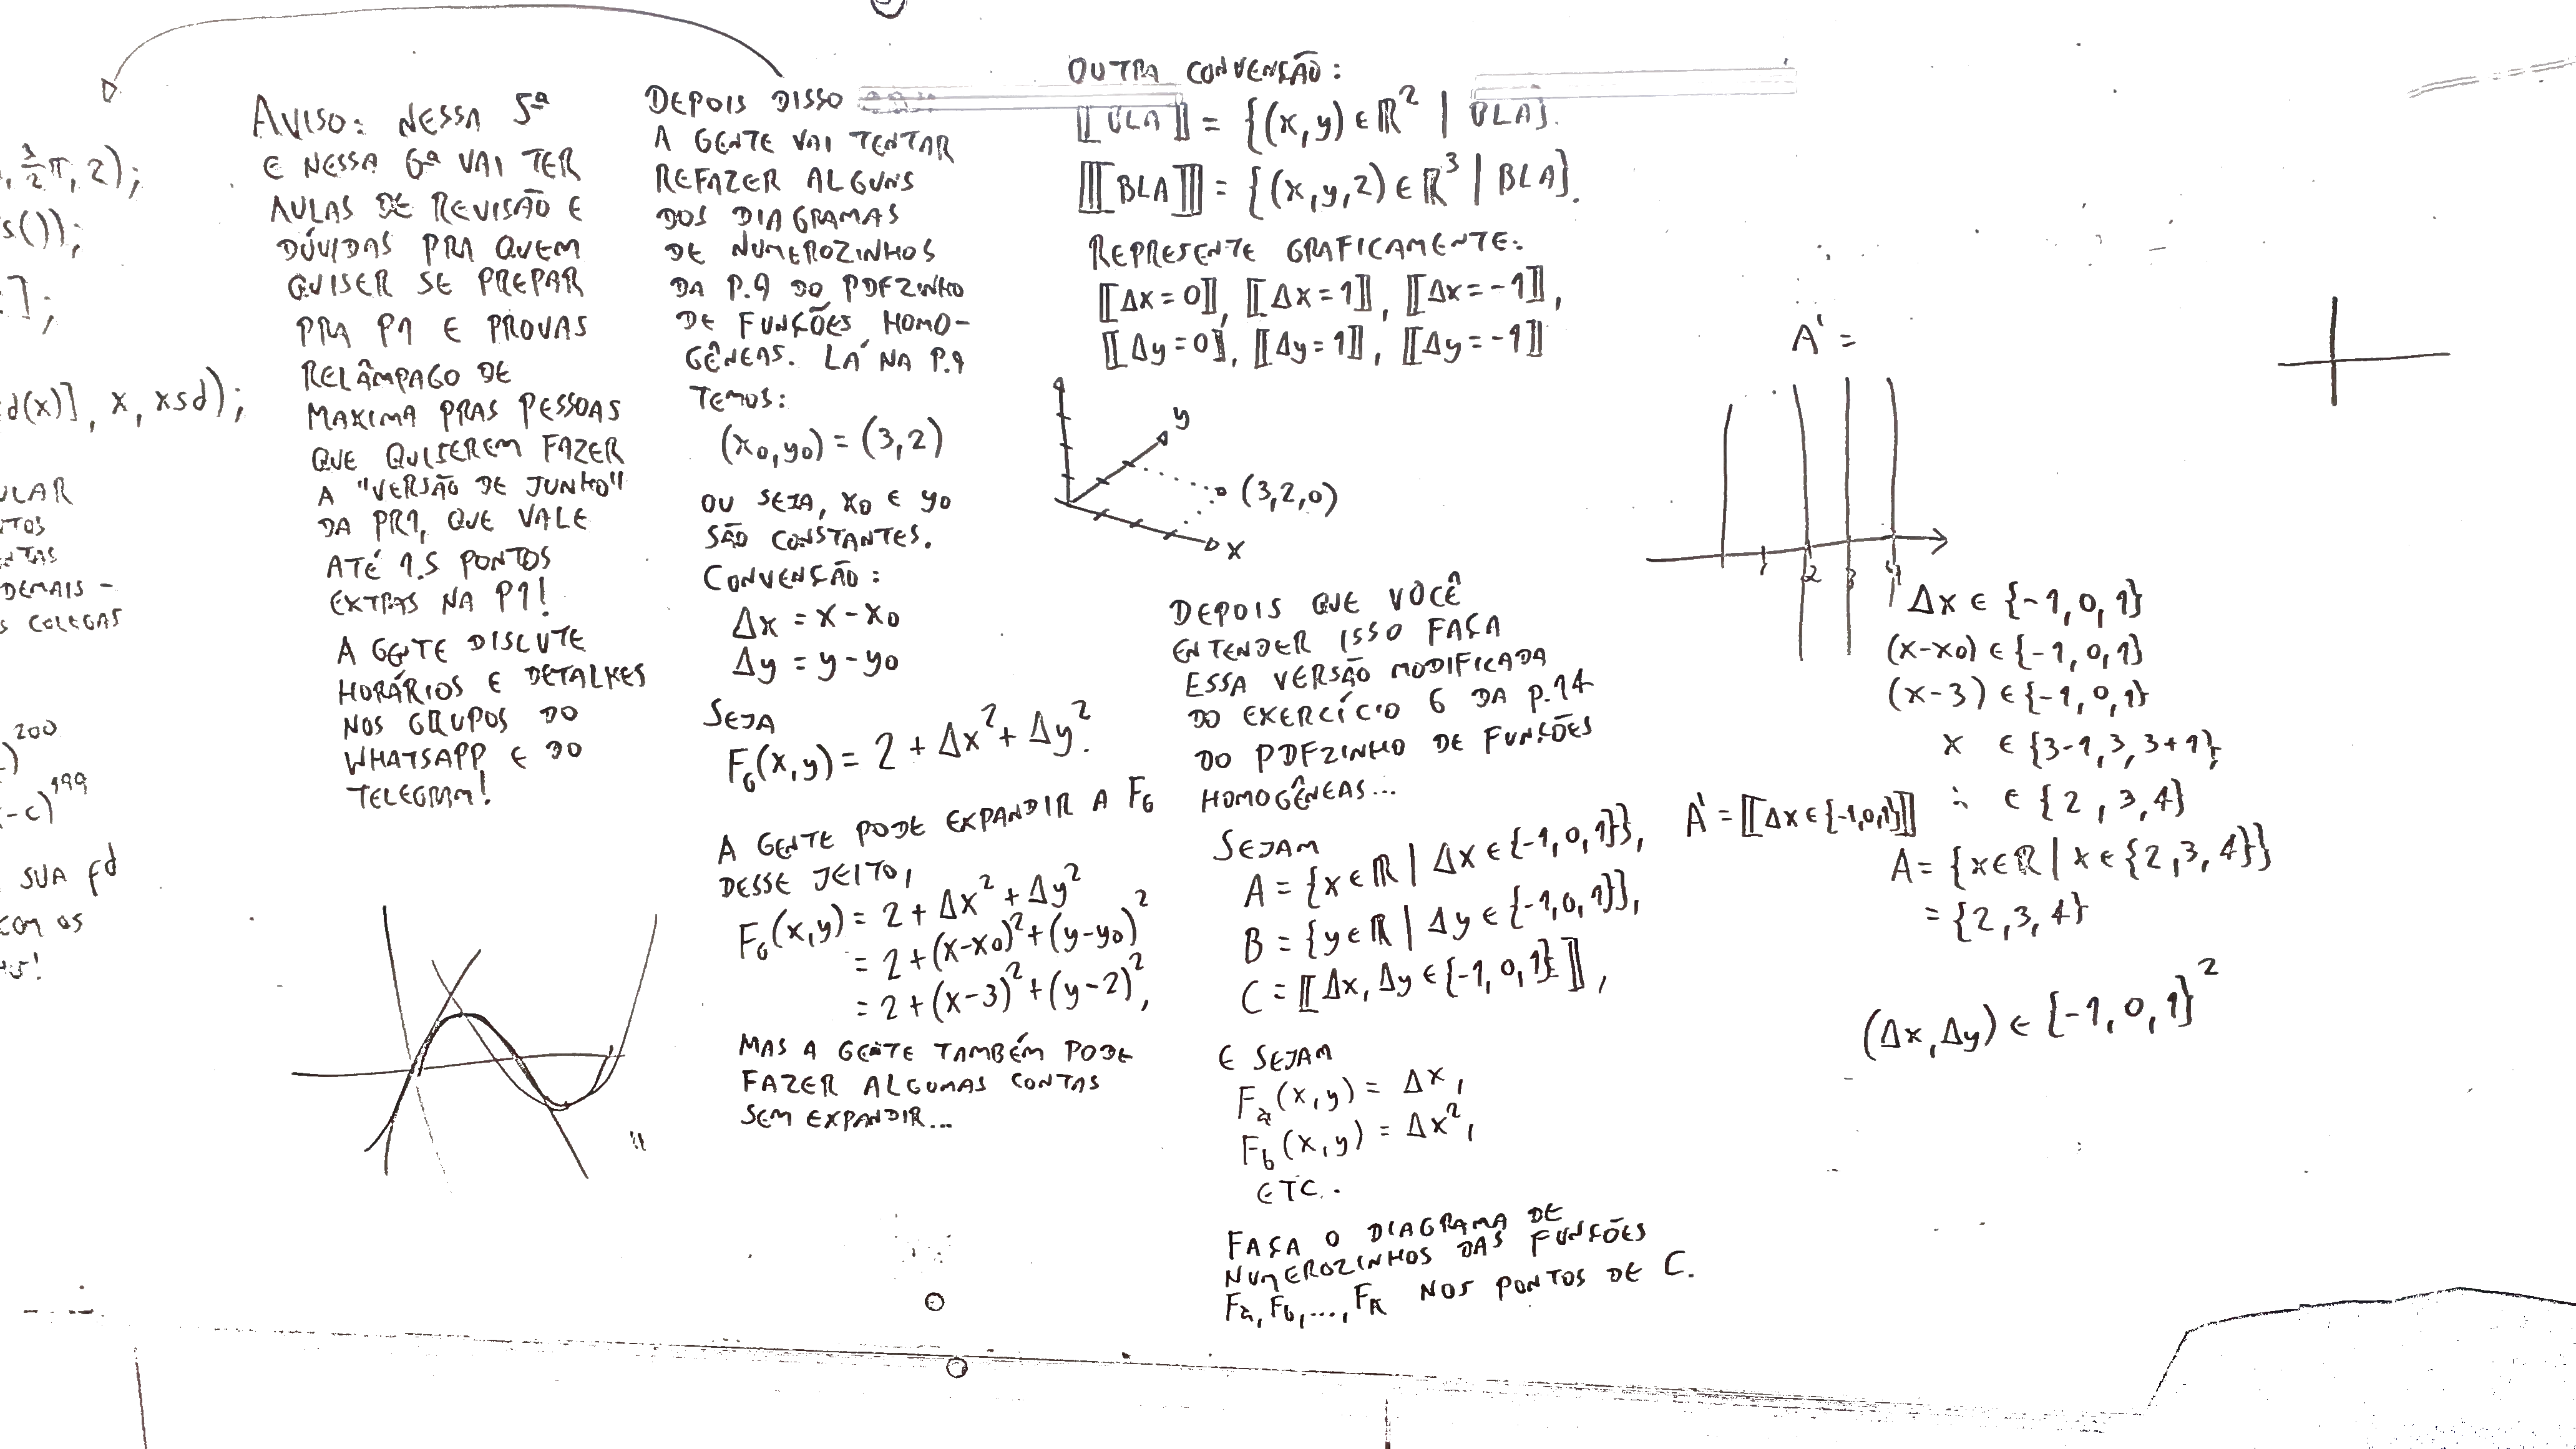 , 3/2 π, 2);
s());
];
d(x)], x, xsd);
ULAR
TOS
NTAS
DEMAIS -
S COLEGAS
)^200
-c)^199
SUA fd
COM OS
AVISO: NESSA 5ª
E NESSA 6ª VAI TER
AULAS DE REVISÃO E
DÚVIDAS PRA QUEM
QUISER SE PREPAR
PRA P1 E PROVAS
RELÂMPAGO DE
MAXIMA PRAS PESSOAS
QUE QUISEREM FAZER
A "VERSÃO DE JUNHO"
DA PR1, QUE VALE
ATÉ 1.5 PONTOS
EXTRAS NA P1!
A GENTE DISCUTE
HORÁRIOS E DETALHES
NOS GRUPOS DO
WHATSAPP E DO
TELEGRAM!
DEPOIS DISSO
A GENTE VAI TENTAR
REFAZER ALGUNS
DOS DIAGRAMAS
DE NUMEROZINHOS
DA P.9 DO PDFZINHO
DE FUNÇÕES HOMO-
GÊNEAS. LÁ NA P.9
TEMOS:
(x0,y0) = (3,2)
OU SEJA, x0 E y0
SÃO CONSTANTES.
CONVENÇÃO:
Δx = x - x0
Δy = y - y0
SEJA
F6(x,y) = 2 + Δx² + Δy².
A GENTE PODE EXPANDIR A F6
DESSE JEITO,
F6(x,y) = 2 + Δx² + Δy²
= 2 + (x-x0)² + (y-y0)²
= 2 + (x-3)² + (y-2)²,
MAS A GENTE TAMBÉM PODE
FAZER ALGUMAS CONTAS
SEM EXPANDIR...
OUTRA CONVENÇÃO:
⟦BLA⟧ = {(x,y) ∈ ℝ² | BLA}.
[⟦BLA⟧] = {(x,y,z) ∈ ℝ³ | BLA}.
REPRESENTE GRAFICAMENTE:
⟦Δx = 0⟧, ⟦Δx = 1⟧, ⟦Δx = -1⟧,
⟦Δy = 0⟧, ⟦Δy = 1⟧, ⟦Δy = -1⟧
y
(3,2,0)
x
DEPOIS QUE VOCÊ
ENTENDER ISSO FAÇA
ESSA VERSÃO MODIFICADA
DO EXERCÍCIO 6 DA P.14
DO PDFZINHO DE FUNÇÕES
HOMOGÊNEAS...
SEJAM
A = {x ∈ ℝ | Δx ∈ {-1,0,1}},
B = {y ∈ ℝ | Δy ∈ {-1,0,1}},
C = ⟦Δx, Δy ∈ {-1,0,1}⟧,
E SEJAM
Fa(x,y) = Δx,
Fb(x,y) = Δx²,
ETC.
FAÇA O DIAGRAMA DE
NUMEROZINHOS DAS FUNÇÕES
Fa, Fb, ..., Fk NOS PONTOS DE C.
A' =
1 2 3 4
Δx ∈ {-1,0,1}
(x-x0) ∈ {-1,0,1}
(x-3) ∈ {-1,0,1}
x ∈ {3-1,3,3+1}
A' = ⟦Δx ∈ {-1,0,1}⟧ ∴ ∈ {2,3,4}
A = {x ∈ ℝ | x ∈ {2,3,4}}
= {2,3,4}
(Δx,Δy) ∈ {-1,0,1}²